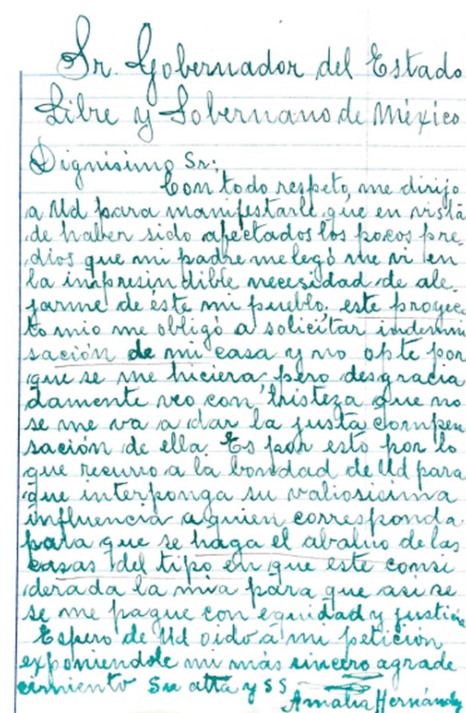 Sr. Gobernador del Estado
Libre y Soberano de México
Dignísimo Sr:
Con todo respeto, me dirijo
a Ud para manifestarle, que en vista
de haber sido afectados los pocos pre-
dios que mi padre me legó me vi en
la impresindible necesidad de ale
jarme de éste mi pueblo. este proyec
to mio me obligó a solicitar indemni
sación de mi casa y no opte por
que se me hiciera pero desgracia
damente veo con thisteza que no
se me va a dar la justa compen
sación de ella. Es por esto por lo
que recurro a la bondad de Ud para
que interponga su valiosicima
influencia a quien corresponda
para que se haga el abaluo de las
casas del tipo en que este consi
derada la mia para que asi se
se me pague con equidad y justicia
Espero de Ud oido a mi petición
exponiendole mi más sincero agrade
cimiento Su atta y SS
Amalia Hernández